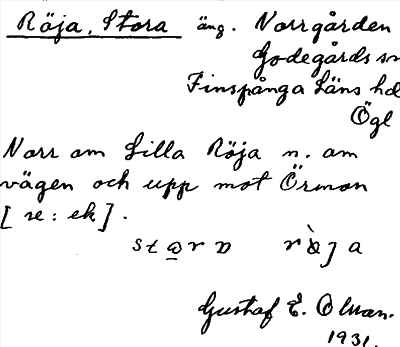 Röja, Stora äng. Norrgården
Godegårds sn
Finspånga läns hd
Ögl
Norr om Lilla Röja n. om
vägen och upp mot Örmon
[re: ek].
Gustaf E. Olsson.
1931.